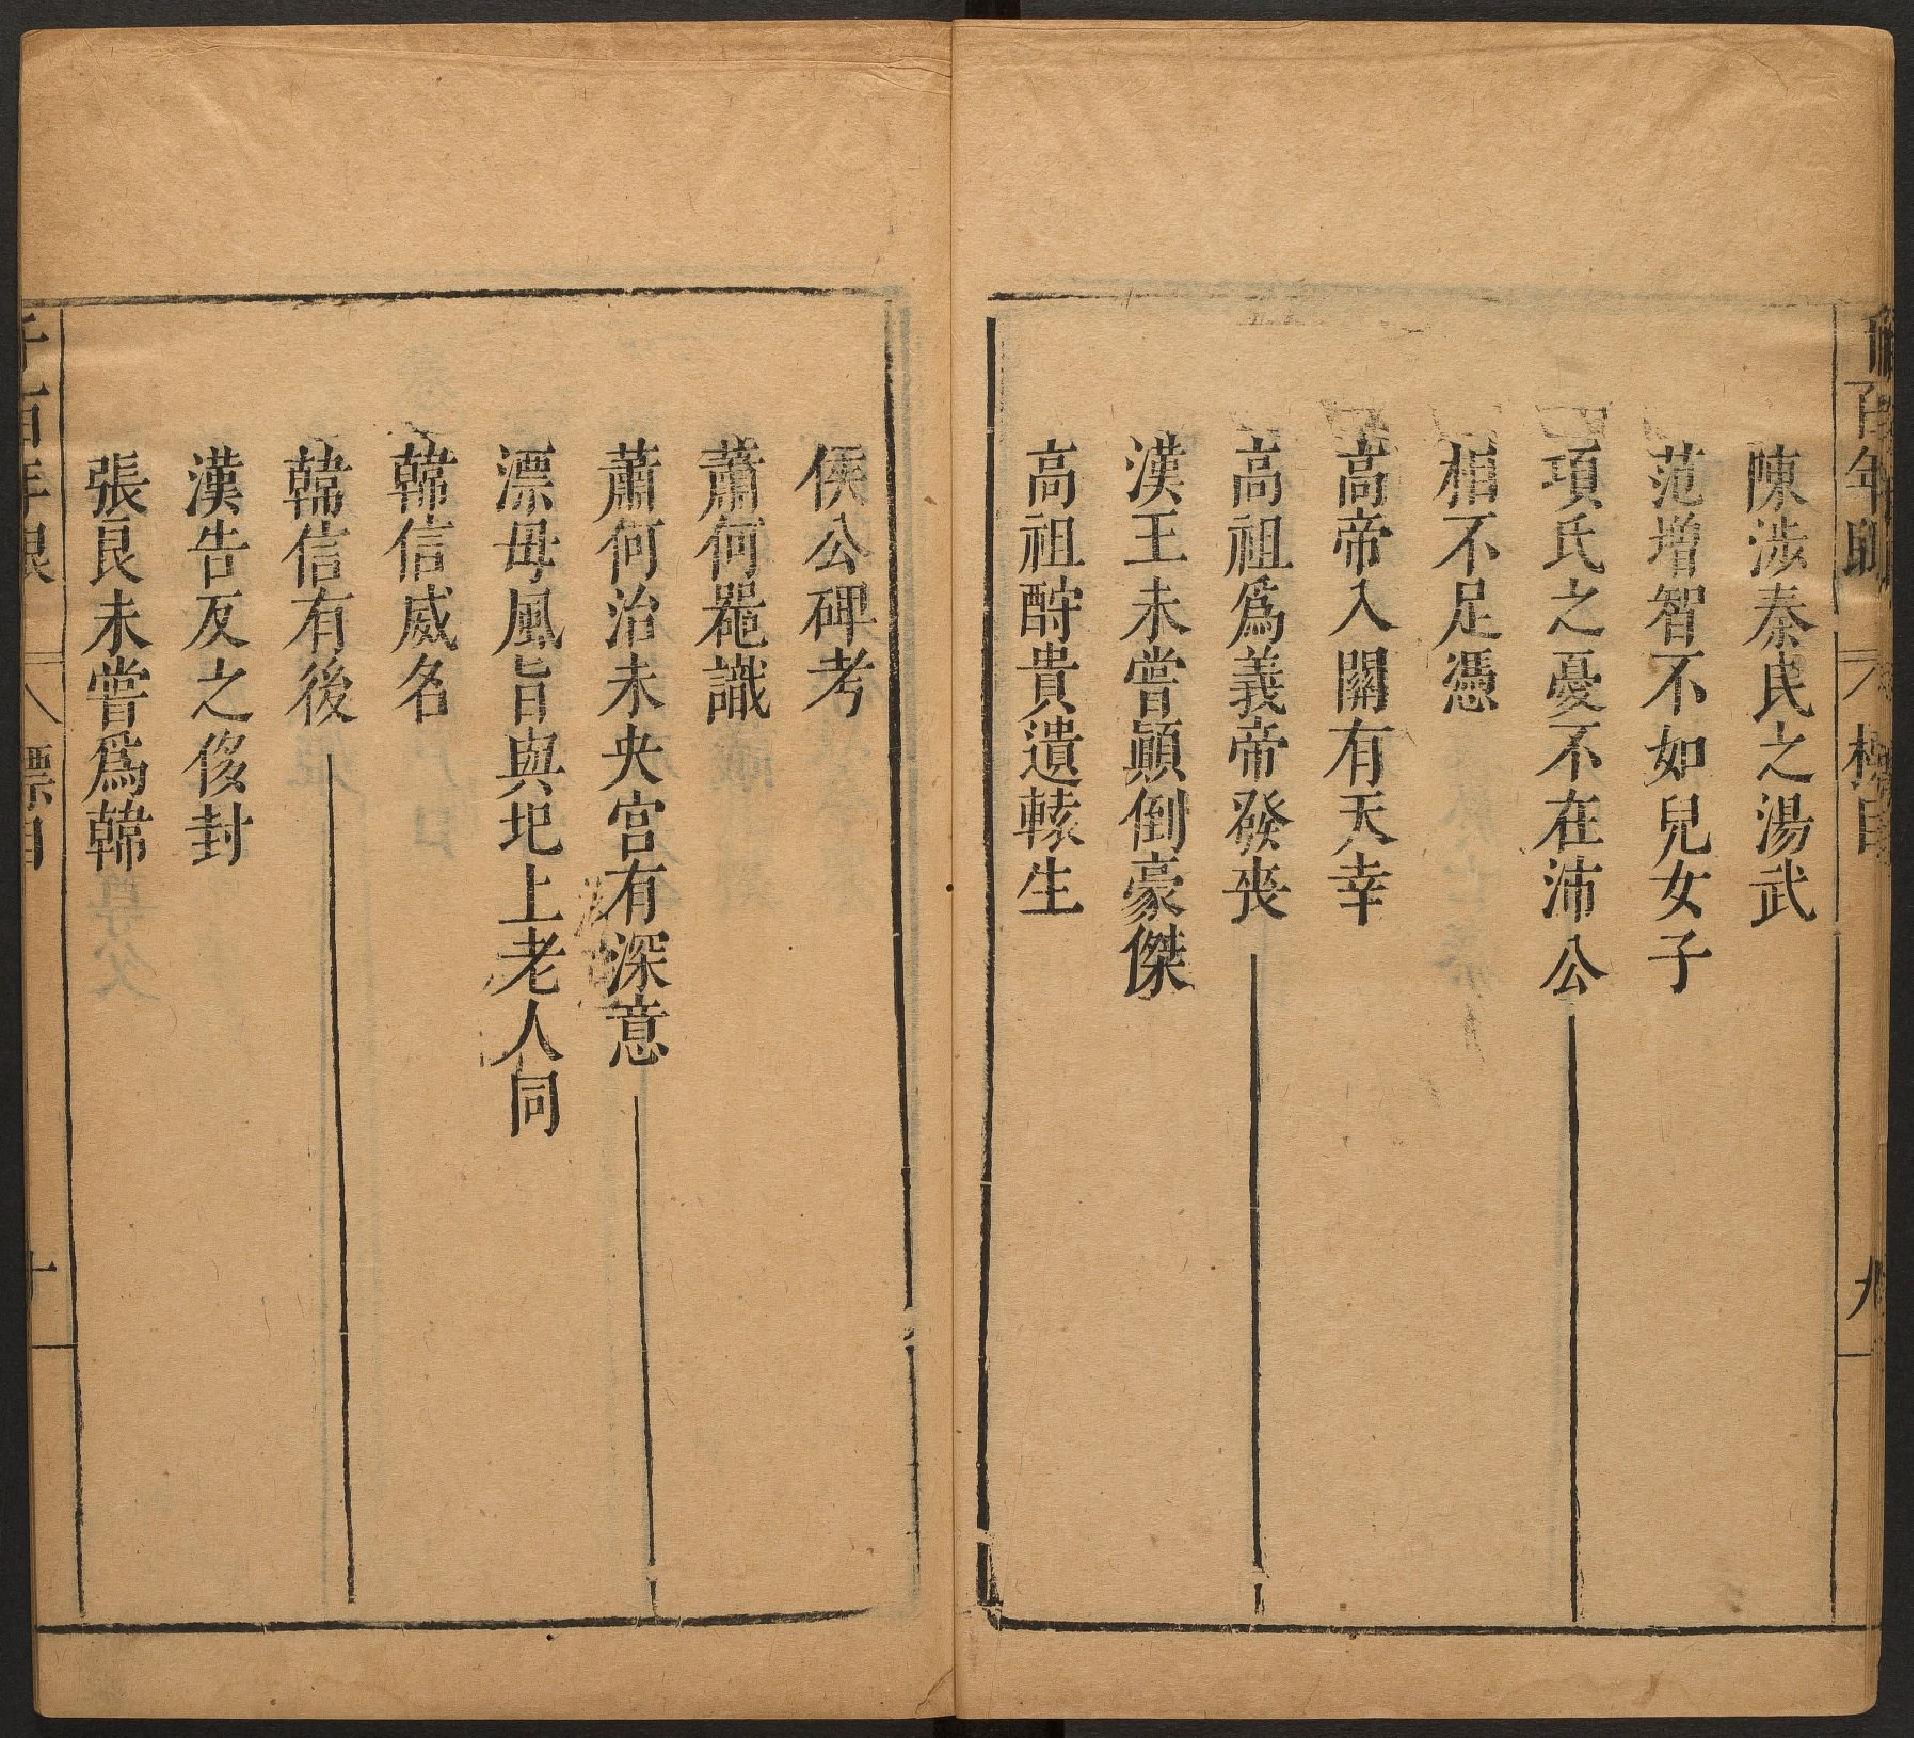 千百年眼
八
標目
九
陳涉秦民之湯武
范增智不如兒女子
項氏之憂不在沛公
相不足憑
高帝入關有天幸
高祖爲義帝發喪
漢王未嘗顛倒豪傑
高祖酧貴遺轅生
侯公碑考
蕭何器識
蕭何治未央宮有深意
漂母風旨與圯上老人同
韓信威名
韓信有後
漢告反之侈封
張良未嘗爲韓
千百年眼
八
標目
十